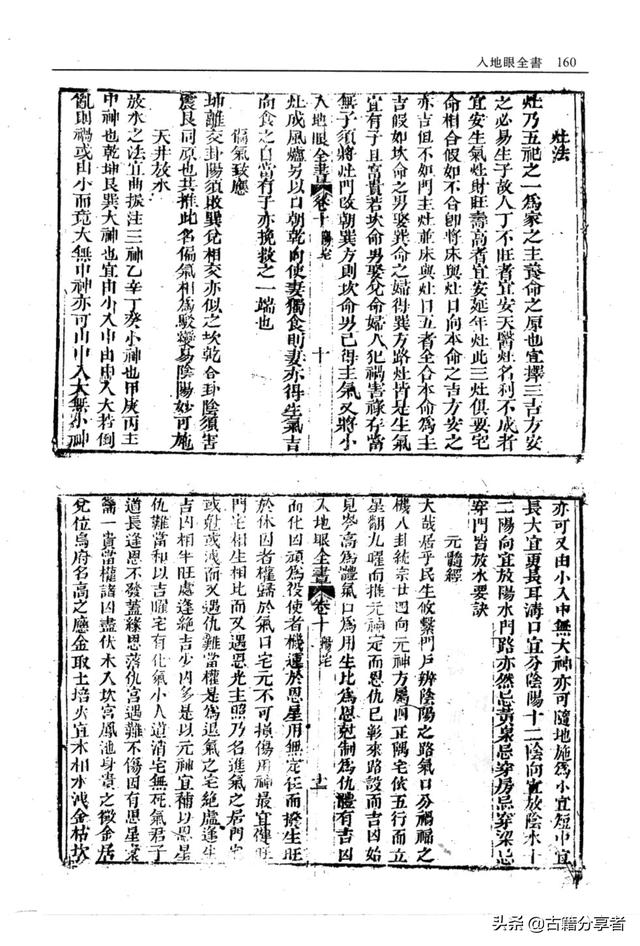 人地眼全書 160
灶法
灶乃五祀之一爲家之主養命之原也宜擇三吉方安
之必易生子故人丁不旺者宜安天醫灶名利不成者
宜安生氣灶財旺壽高者宜安延年灶此三灶俱要宅
命相合假如不合卽將床與灶口向本命之吉方安之
亦吉但不如門主灶並床與灶口五者全合本命爲主
吉假如坎命之男娶巽命之婦得巽方路灶皆是生氣
宜有子且富貴若坎命男娶兌命婦八犯禍害祿存當
無子須將灶門改朝巽方則坎命男已得主氣又將小
人地眼全書 卷十 陽宅 十
灶成風爐另以口朝乾向使妻獨食則妻亦得生氣吉
而食之自當有子亦挽救之一端也
偏氣致應
坤離交卦陽須敗巽兌相交亦似之坎乾合卦陰須害
震艮同原也共推此名偏氣相爲駁變易陰陽妙可施
天井放水
放水之法宜曲拔注三神乙辛丁癸小神也甲庚丙壬
中神也乾坤艮巽大神也宜由小入中由中入大若倒
亂則禍或由小而竟大無中神亦可由中入大無小神
亦可又由小入中無大神亦可隨地施爲小宜短中宜
長大宜更長耳溝口宜分陰陽十二陰向宜放陰水十
二陽向宜放陽水門路亦然忌黃泉忌穿房忌穿梁忌
穿門皆放水要訣
元髓經
大哉居乎民生攸繫門戶辨陰陽之路氣口分禍福之
機八卦統宗廿四向元神方屬四正隅宅依五行而立
星翻九曜而推元神定而恩仇已彰來路設而吉凶始
見岑高爲體氣口爲用生比爲恩尅制爲仇體有吉凶
人地眼全書 卷十 陽宅 十一
而化凶頑爲役使者機運於恩星用無定任而撥生旺
於休囚者權歸於氣口宅元不可損傷用神最宜健旺
門宅相生相比而又遇恩光主照乃名進氣之居門宅
或尅或洩而又遇仇難當權是爲退氣之宅絕處逢生
吉凶相半旺處逢絕吉少凶多是以元神宜補以恩星
仇難當和以吉曜宅有化氣小人道消宅無死氣君子
道長逢恩不發蓋緣恩落仇宮遇難不傷因有恩星掌
籥一貴當權諸凶盡伏木入坎宮鳳池身貴之徵金居
兌位烏府名高之應金取土培亦宜木相水洩金枯坎
头条 @古籍分享者